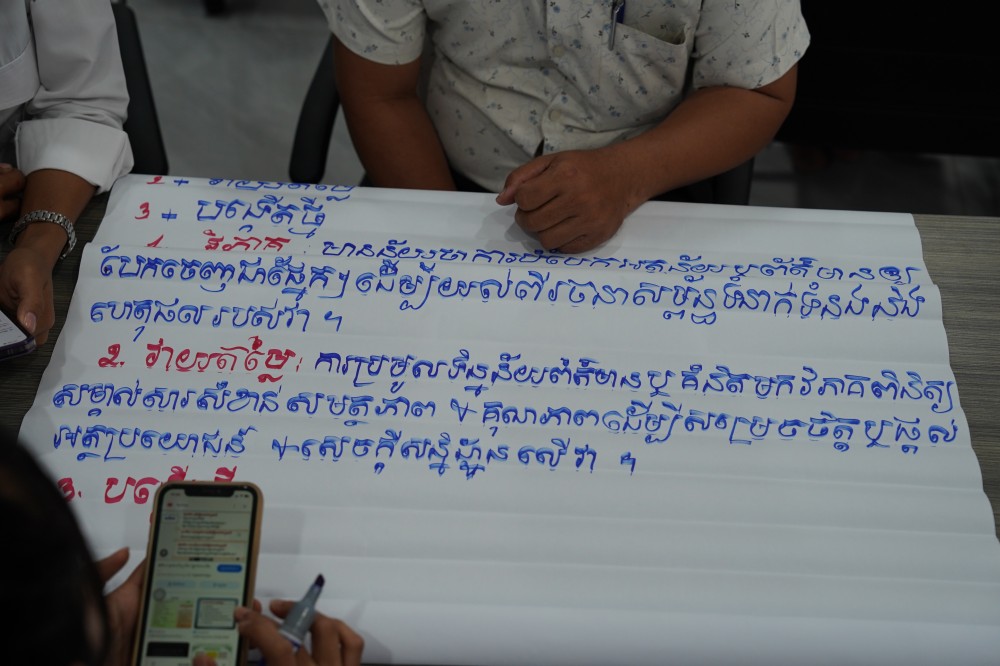 2 + វាយតម្លៃ
3 + បង្កើតថ្មី
1. វិភាគ : មានន័យថា ការបំបែកអត្ថន័យ ឬព័ត៌មានឲ្យ
បែកចេញជាផ្នែកៗ ដើម្បីយល់ពីរចនាសម្ព័ន្ធ ទំនាក់ទំនង និង
ហេតុផល របស់វា ។
2. វាយតម្លៃ : ការប្រមូលទិន្នន័យ ព័ត៌មាន ឬ គំនិតមកវិភាគ ពិនិត្យ
សម្គាល់សារសំខាន់ សមត្ថភាព + គុណភាព ដើម្បីសម្រេចចិត្ត ឬផ្តល់
អត្ថប្រយោជន៍ + សេចក្តីសន្និដ្ឋាន លើវា ។
3. បង្កើតថ្មី